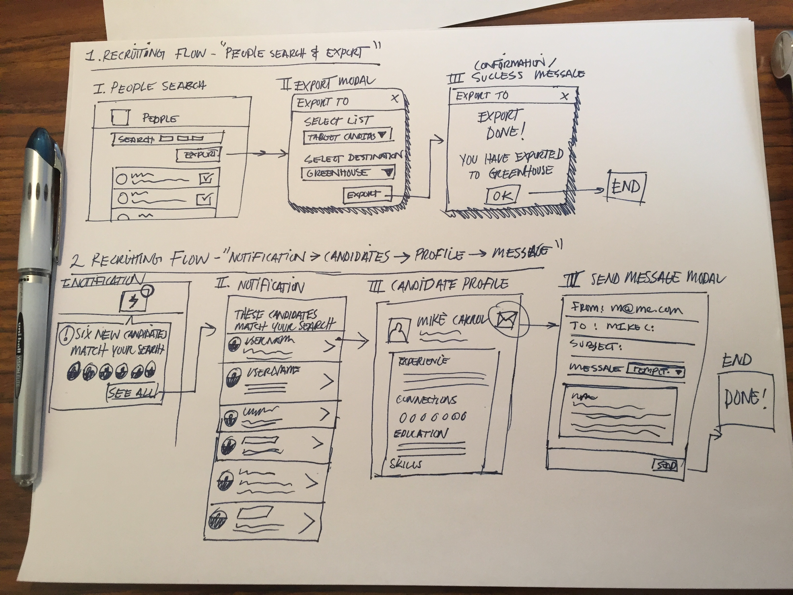 1. RECRUITING FLOW - "PEOPLE SEARCH & EXPORT"
I. PEOPLE SEARCH
PEOPLE
SEARCH
EXPORT
II EXPORT MODAL
EXPORT TO X
SELECT LIST
TARGET
SELECT DESTINATION
GREENHOUSE
EXPORT
CONFIRMATION/
III SUCCESS MESSAGE
EXPORT TO X
EXPORT
DONE!
YOU HAVE EXPORTED
TO GREENHOUSE
OK
END
2 RECRUITING FLOW - "NOTIFICATION → CANDIDATES → PROFILE → MESSAGE"
I. NOTIFICATION
! SIX NEW CANDIDATES
MATCH YOUR SEARCH
SEE ALL
II. NOTIFICATION
THESE CANDIDATES
MATCH YOUR SEARCH
USERNAME
USERNAME
III CANDIDATE PROFILE
MIKE
EXPERIENCE
CONNECTIONS
EDUCATION
SKILLS
IIII SEND MESSAGE MODAL
FROM: m@me.com
TO: MIKE C:
SUBJECT:
MESSAGE
SEND
END
DONE!